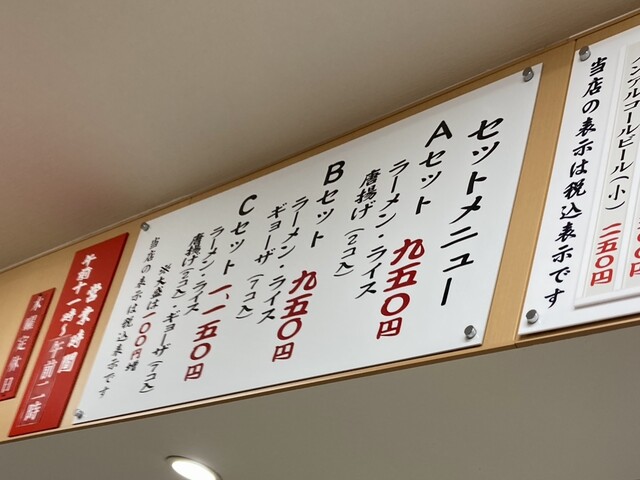 ノンアルコールビール(小)
二五〇円
当店の表示は税込表示です
セットメニュー
Aセット 九五〇円
ラーメン・ライス
唐揚げ(2コ入)
Bセット 九五〇円
ラーメン・ライス
ギョーザ(7コ入)
Cセット 一、一五〇円
ラーメン・ライス
唐揚げ(2コ入)・ギョーザ(7コ入)
※大盛は一〇〇円増
当店の表示は税込表示です
営業時間
午前十一時～午前二時
木曜定休日